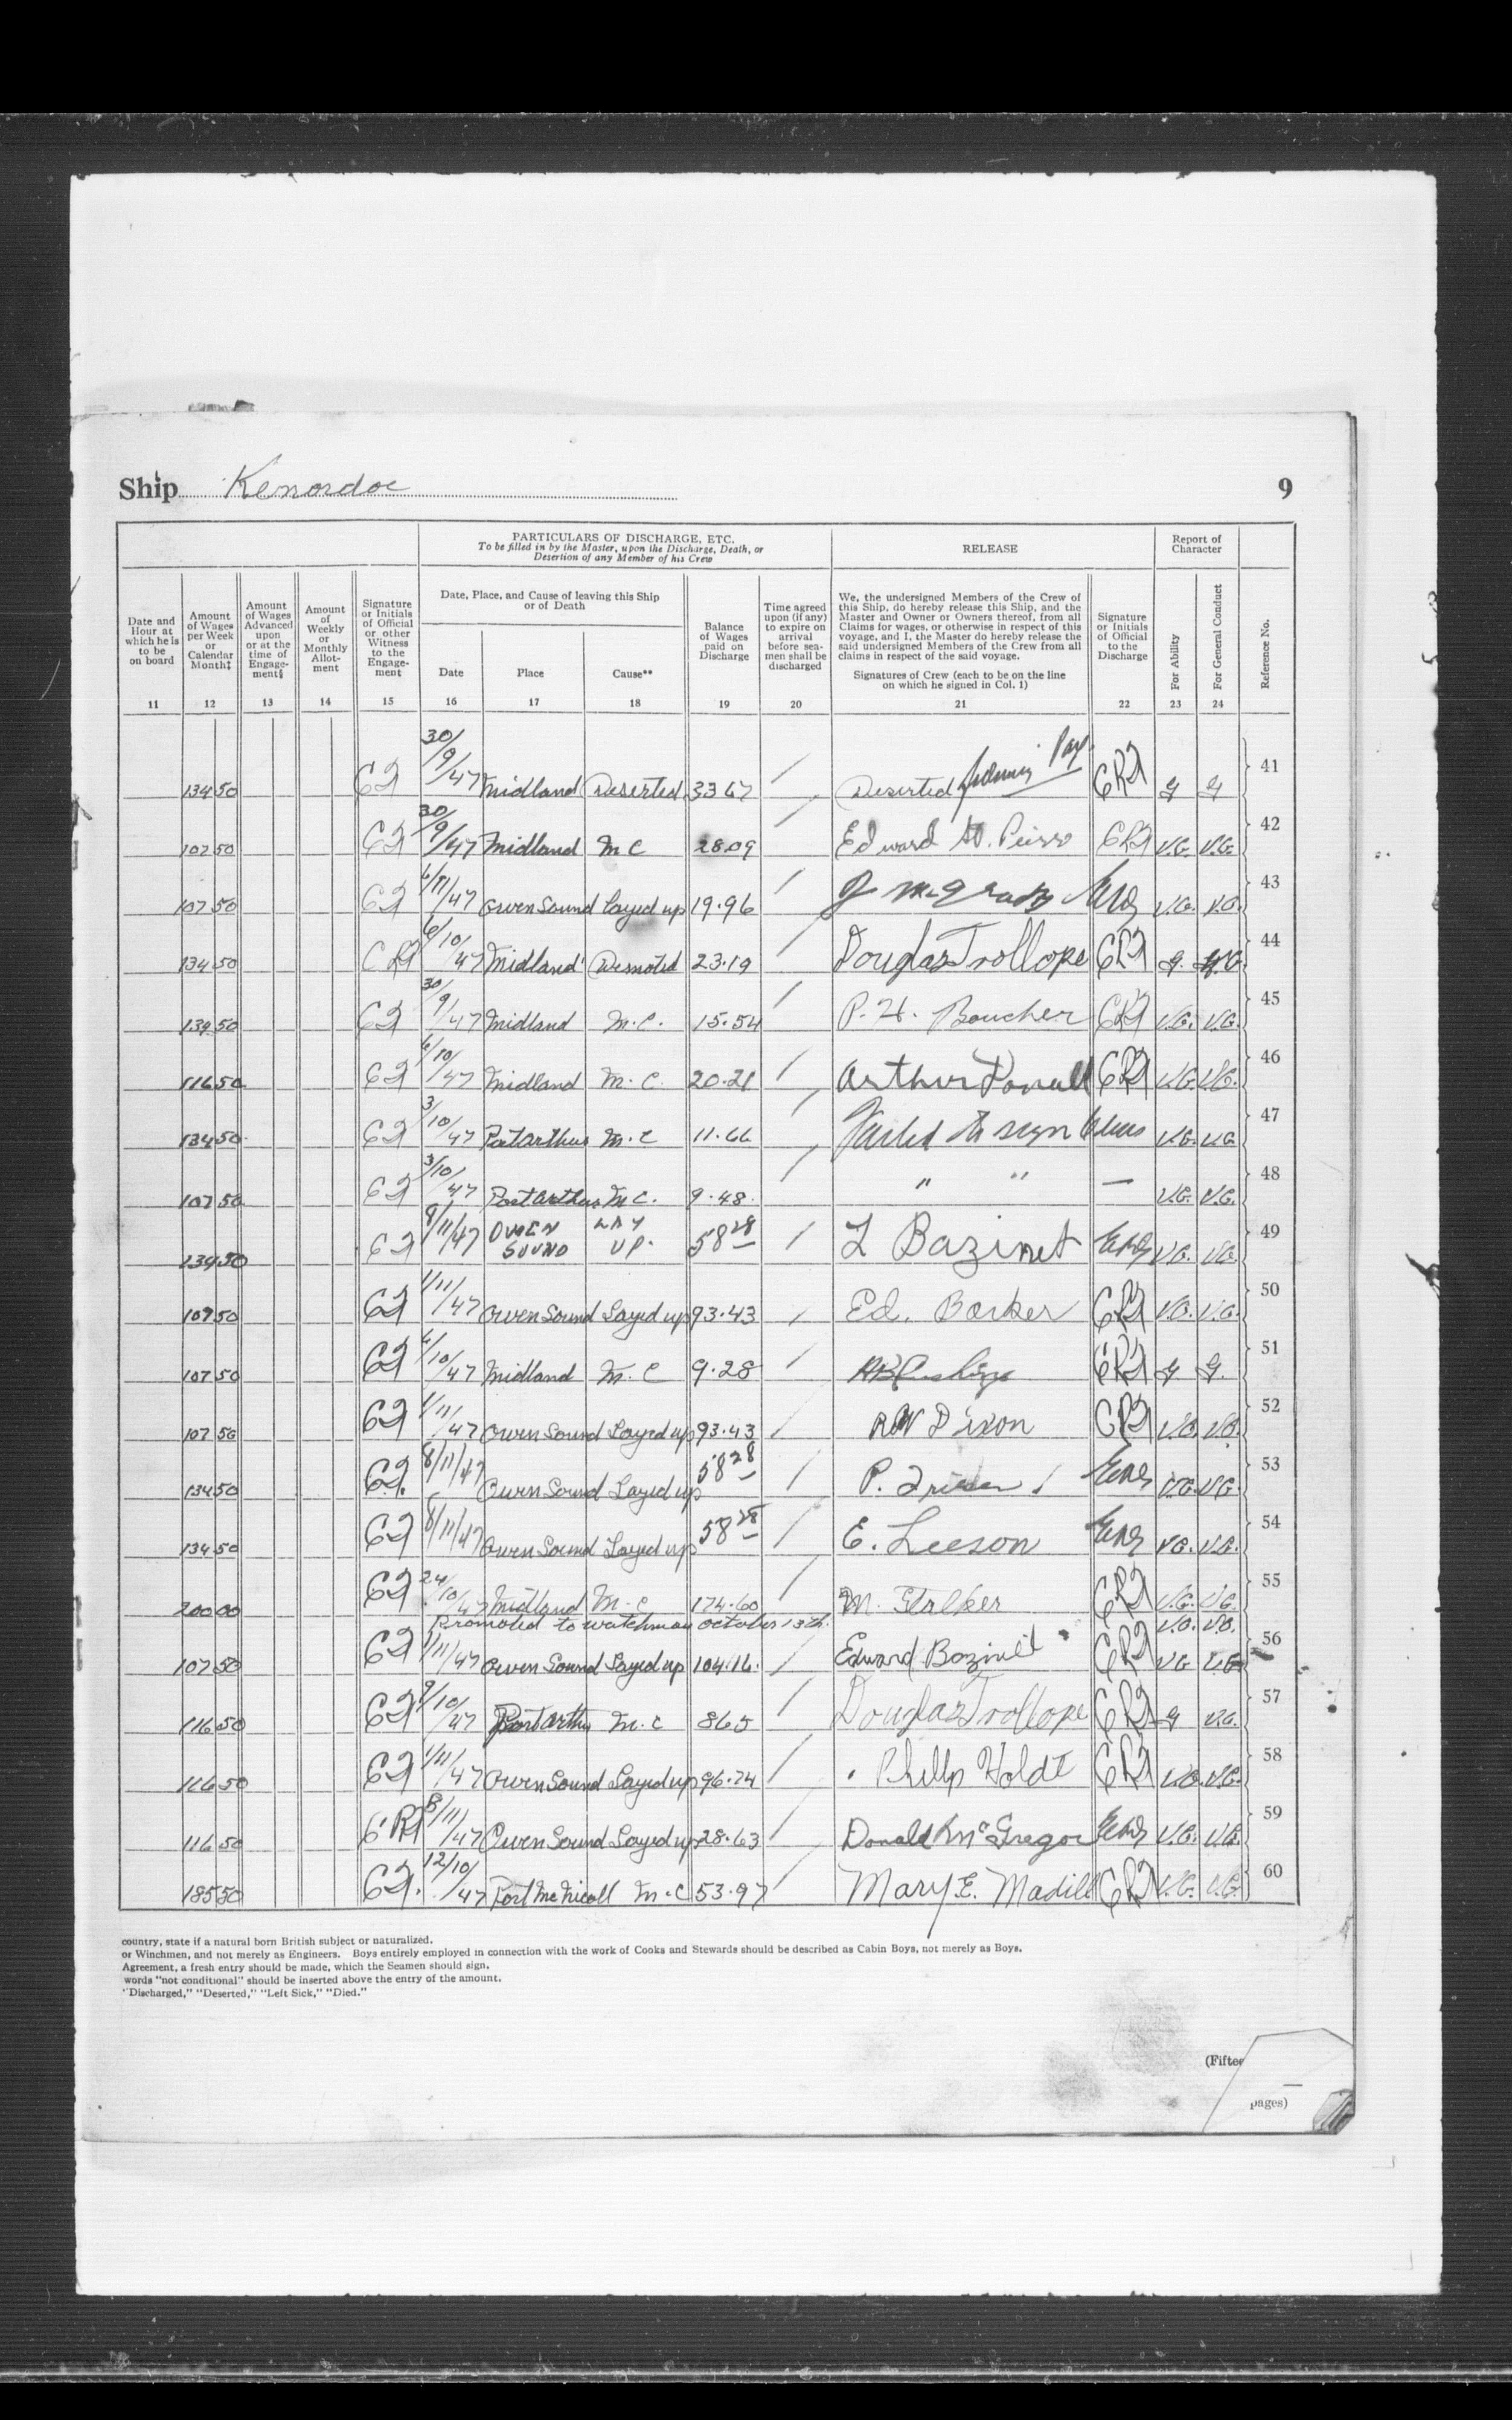 Ship Kenordoc
9
PARTICULARS OF DISCHARGE, ETC.
To be filled in by the Master, upon the Discharge, Death, or
Desertion of any Member of his Crew
RELEASE
Report of
Character
Date and
Hour at
which he is
to be
on board
11
Amount
of Wages
per Week
or
Calendar
Month‡
12
Amount
of Wages
Advanced
upon
or at the
time of
Engage-
ment§
13
Amount
of
Weekly
or
Monthly
Allot-
ment
14
Signature
or Initials
of Official
or other
Witness
to the
Engage-
ment
15
Date, Place, and Cause of leaving this Ship
or of Death
Date
16
Place
17
Cause**
18
Balance
of Wages
paid on
Discharge
19
Time agreed
upon (if any)
to expire on
arrival
before sea-
men shall be
discharged
20
We, the undersigned Members of the Crew of
this Ship, do hereby release this Ship, and the
Master and Owner or Owners thereof, from all
Claims for wages, or otherwise in respect of this
voyage, and I, the Master do hereby release the
said undersigned Members of the Crew from all
claims in respect of the said voyage.
Signatures of Crew (each to be on the line
on which he signed in Col. 1)
21
Signature
or Initials
of Official
to the
Discharge
22
For Ability
23
For General Conduct
24
Reference No.
134 50 30/9/47 Midland Deserted 33 67 Deserted Pay G G 41
107 50 30/9/47 Midland M C 28.09 Edward V.G. V.G. 42
107 50 /11/47 Owen Sound Layed up 19.96 J V.G. V.G. 43
134 50 6/10/47 Midland Demoted 23.19 Douglas Trollope G. V.G. 44
139 50 30/9/47 Midland M.C. 15.54 P. H. Boucher V.G. V.G. 45
116 50 6/10/47 Midland M.C. 20.21 Arthur V.G. V.G. 46
134 50 3/10/47 Port Arthur M.C 11.66 Failed to sign V.G. V.G. 47
107 50 3/10/47 Port Arthur M C. 9.48 " " — V.G. V.G. 48
139 50 8/11/47 OWEN SOUND LAY UP. 58 28 L Bazinet V.G. V.G. 49
107 50 1/11/47 Owen Sound Layed up 93.43 Ed. Barker V.G. V.G. 50
107 50 6/10/47 Midland M.C 9.28 G G. 51
107 50 1/11/47 Owen Sound Layed up 93.43 R W Dixon V.G. V.G. 52
134 50 8/11/47 Owen Sound Layed up 58 28 P. Friesen V.G. V.G. 53
134 50 8/11/47 Owen Sound Layed up 58 28 E. Leeson V.G. V.G. 54
200 00 24/10/47 Midland M.C 174.60 M. Stalker V.G. V.G. 55
Promoted to watchman October 13th. V.G. V.G.
107 50 1/11/47 Owen Sound Layed up 104.16. Edward Bazinet V.G. 56
116 50 9/10/47 Port Arthur M.C 8 65 Douglas Trollope G V.G. 57
116 50 1/11/47 Owen Sound Layed up 96.74 Phillp Holdt V.G. V.G. 58
116 50 8/11/47 Owen Sound Layed up 28.63 Donald McGregor V.G. V.G. 59
185 50 12/10/47 Port McNicoll M.C 53.97 Mary E. Madill V.G. V.G. 60
country, state if a natural born British subject or naturalized.
or Winchmen, and not merely as Engineers. Boys entirely employed in connection with the work of Cooks and Stewards should be described as Cabin Boys, not merely as Boys.
Agreement, a fresh entry should be made, which the Seamen should sign.
words "not conditional" should be inserted above the entry of the amount.
"Discharged," "Deserted," "Left Sick," "Died."
(Fiftee
pages)